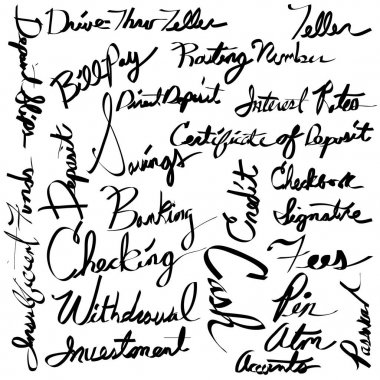 Drive-Thru Teller
Teller
Deposit Slip
Bill Pay
Routing Number
Direct Deposit
Interest Rates
Certificate of Deposit
Savings
Deposit
Insufficient Funds
Credit
Checkbook
Signature
Banking
Checking
Cash
Fees
Withdrawal
Pin
Investment
Atm
Accounts
Password